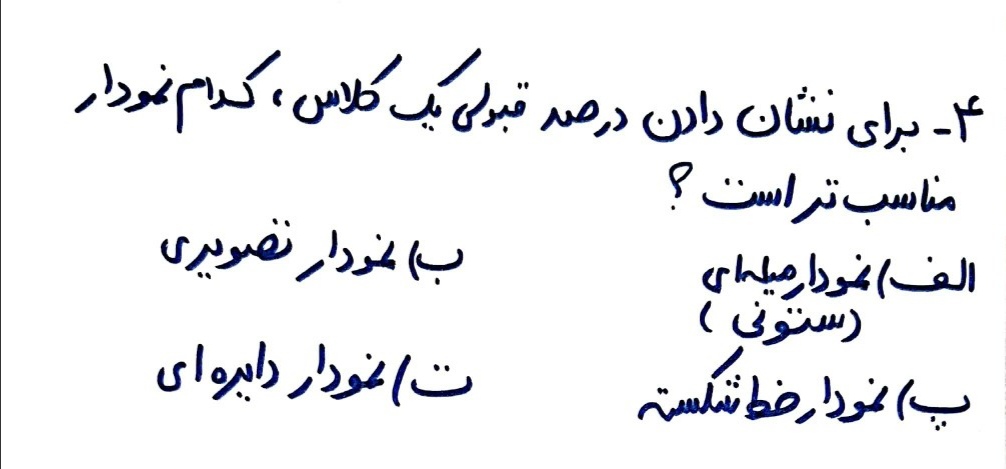 ۴- برای نشان دادن درصد قبولی یک کلاس، کدام نمودار
مناسب تر است؟
الف) نمودار میله‌ای ب) نمودار تصویری
(ستونی)
پ) نمودار خط شکسته ت) نمودار دایره ای